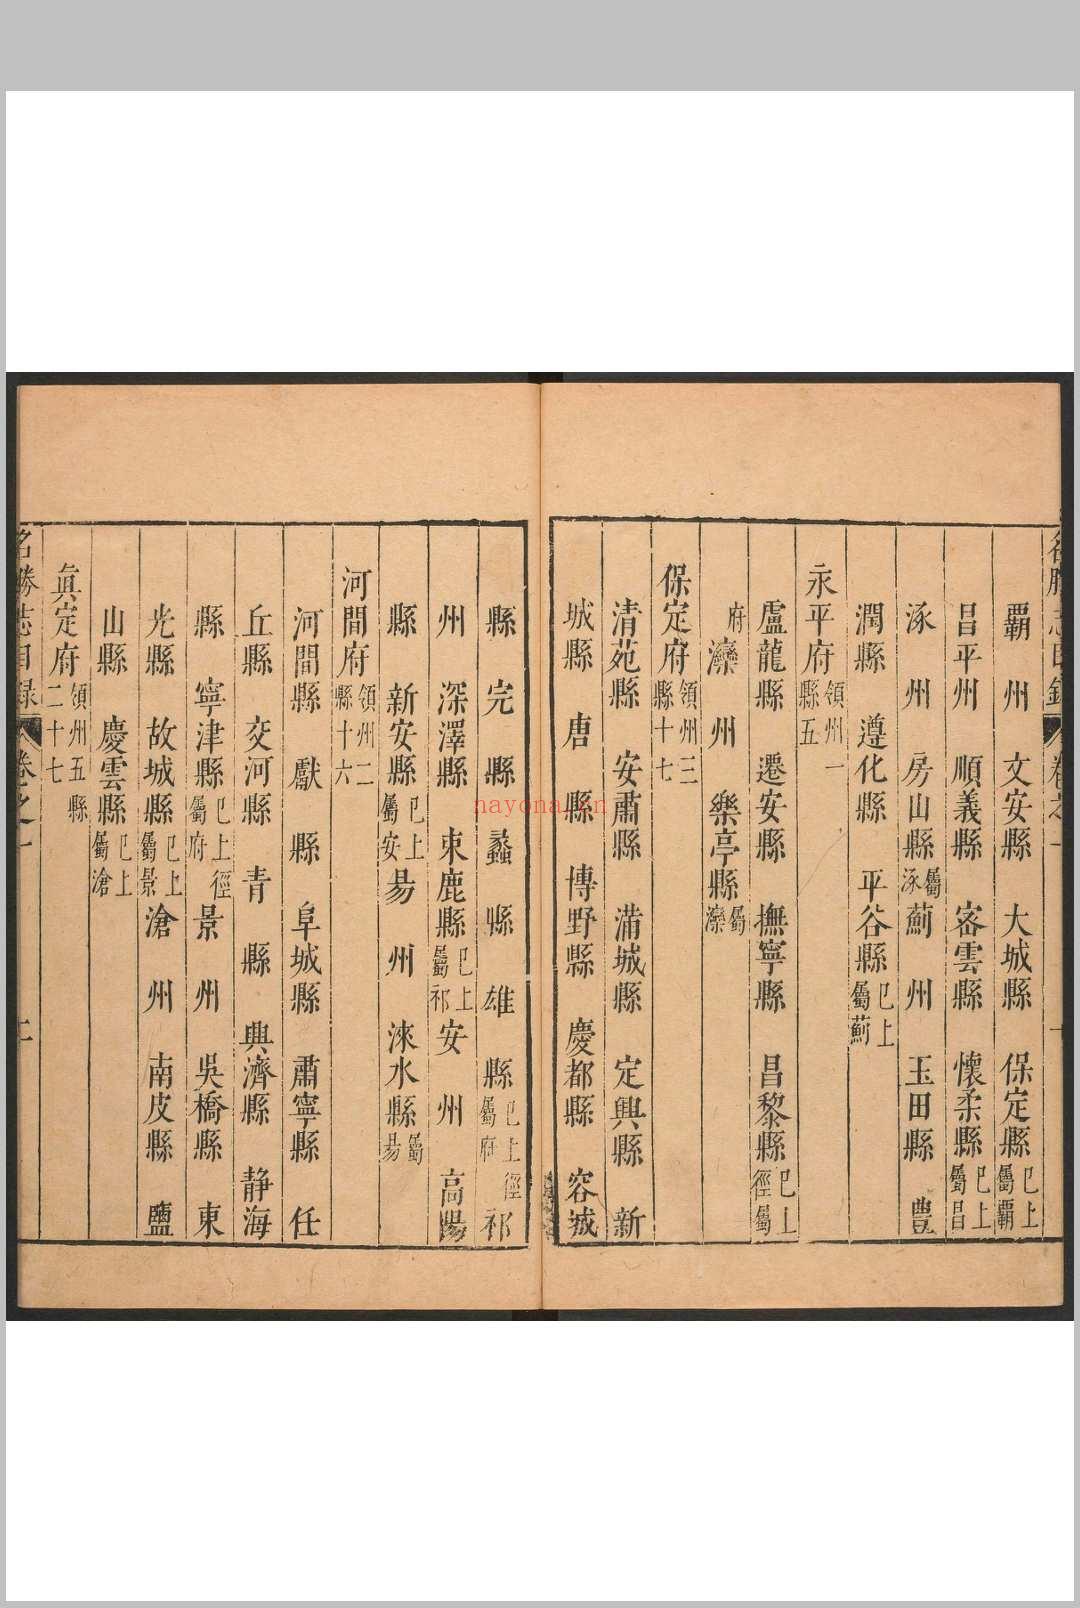 霸州 文安縣 大城縣 保定縣 已上屬霸
昌平州 順義縣 密雲縣 懷柔縣 已上屬昌
涿州 房山縣 屬涿 薊州 玉田縣 豊
潤縣 遵化縣 平谷縣 已上屬薊
永平府 領州一縣五
盧龍縣 遷安縣 撫寧縣 昌黎縣 已上徑屬
府 灤州 樂亭縣 屬灤
保定府 領州三縣十七
清苑縣 安肅縣 滿城縣 定興縣 新
城縣 唐縣 博野縣 慶都縣 容城
縣 完縣 蠡縣 雄縣 已上徑屬府 祁
州 深澤縣 東鹿縣 已上屬祁 安州 高陽
縣 新安縣 已上屬安 易州 淶水縣 屬易
河間府 領州二縣十六
河間縣 獻縣 阜城縣 肅寧縣 任
丘縣 交河縣 青縣 興濟縣 静海
縣 寧津縣 已上徑屬府 景州 吳橋縣 東
光縣 故城縣 已上屬景 滄州 南皮縣 鹽
山縣 慶雲縣 已上屬滄
真定府 領州五縣二十七
名勝志目録 卷之一
nayona.cn